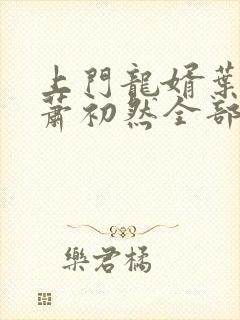 上門龍婿葉
蕭初然全部
樂君橘